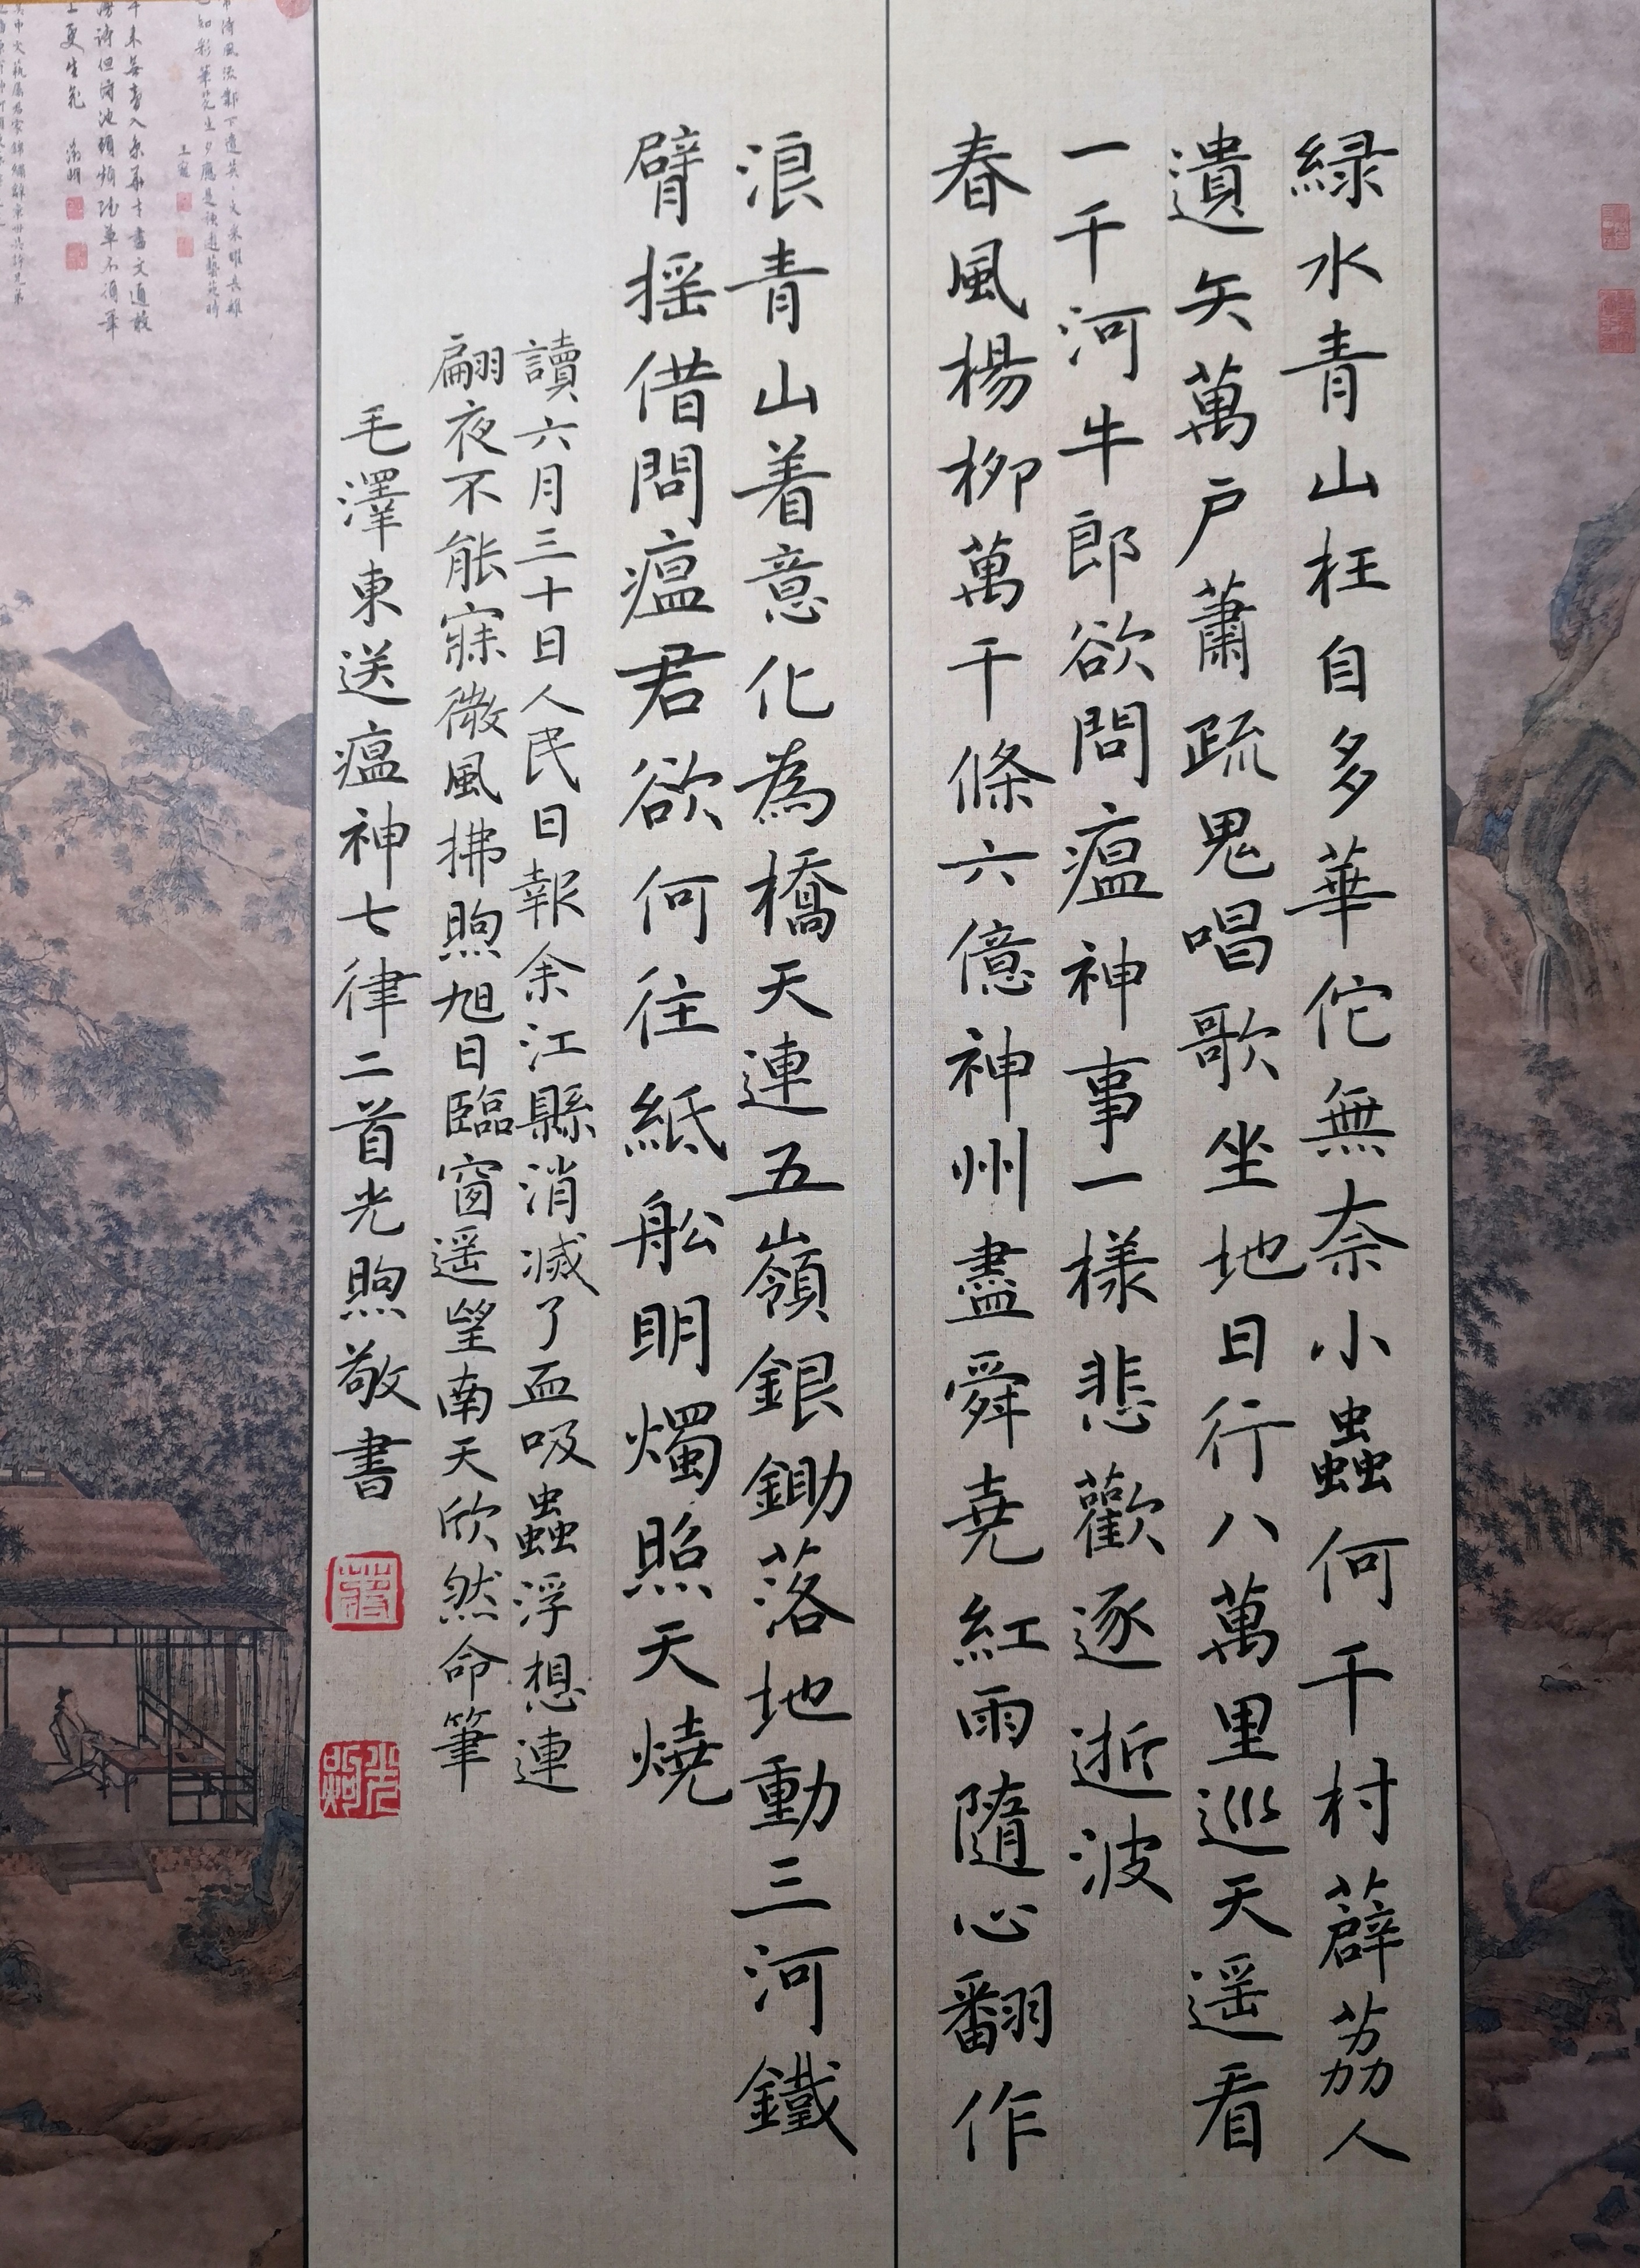 緑水青山枉自多華佗無奈小蟲何千村薜荔人
遺矢萬户蕭疏鬼唱歌坐地日行八萬里巡天遥看
一千河牛郎欲問瘟神事一樣悲歡逐逝波
春風楊柳萬千條六億神州盡舜堯紅雨隨心翻作
浪青山着意化為橋天連五嶺銀鋤落地動三河鐵
臂摇借問瘟君欲何往紙船明燭照天燒
讀六月三十日人民日報余江縣消滅了血吸蟲浮想連
翩夜不能寐微風拂煦旭日臨窗遥望南天欣然命筆
毛澤東送瘟神七律二首光煦敬書